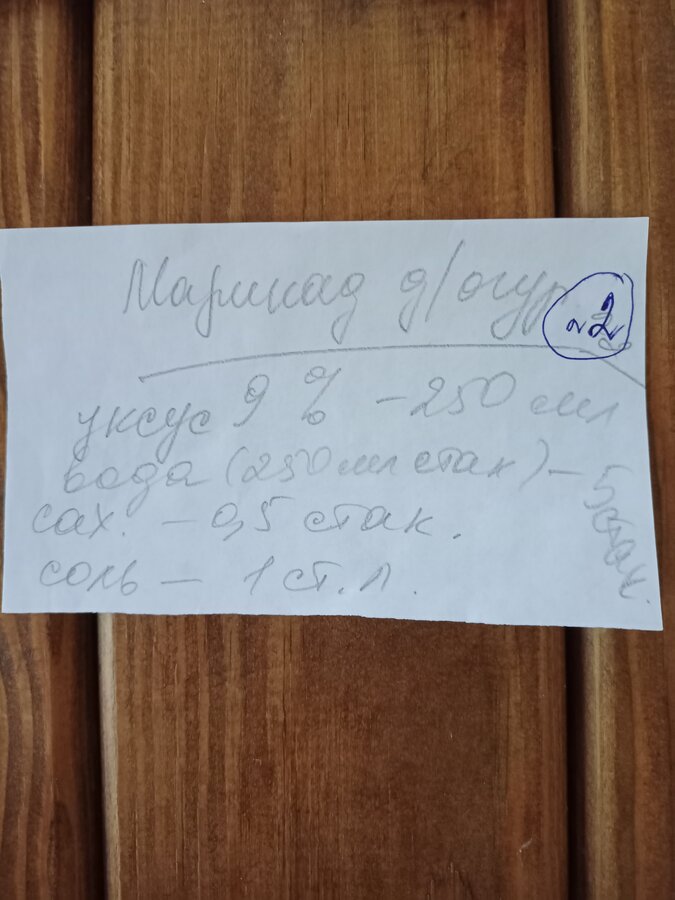 Маринад д/огур.
~2
уксус 9 % - 250 мл
вода (250 мл стак) - 5 стак.
сах. - 0,5 стак.
соль - 1 ст. л.